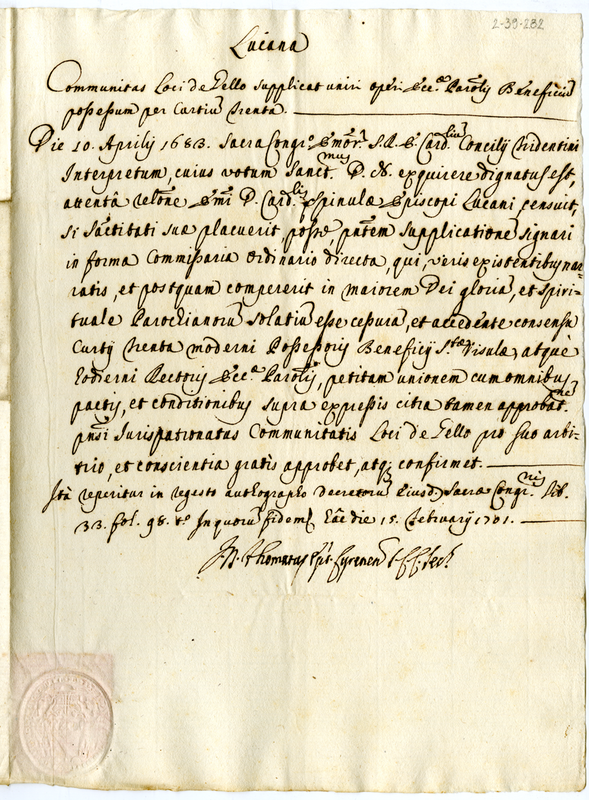 2-39-282
Lucana
Communitas Loci de Tello supplicat uniri operi Ecc.æ Parolis Beneficiũ
possessum per Curtiũ Trenta.
Die 10. Aprilis 1683. Sacra Congr.o Emor. S.R.E. Card.lium Concilij Tridentini
Interpretum, cuius votum Sanct.mus D. N. exquirere dignatus est,
attentâ relõne Emi D. Card.lis Spinulæ Episcopi Lucani, censuit,
si Sãctitati suæ placuerit, posse, pñtem supplicatione signari
in forma Commissaria Ordinario directa, qui, veris existentibus nar-
ratis, et postquam compererit in maiorem Dei gloriã, et Spiri-
tuale Parochianorũ solatiũ esse cessura, et accedente consensu
Curtij Trenta moderni Possessoris Beneficij S.tæ Visulæ, atque
hodierni Rectoris Ecc.æ Parolis, petitam unionem cum omnibus
pactis, et conditionibus supra expressis citra tamen approbat.ne
pñsi Iurispatronatus Communitatis Loci de Tello pro suo arbi-
trio, et conscientia gratis approbet, atq; confirmet.
Ita reperitur in regesto authographo decretorũ Eiusd. Sacræ Congr.nis lib.
33. fol. 98. t.o In quorũ fidem die 15. Februarij 1701.
M. Thomatus